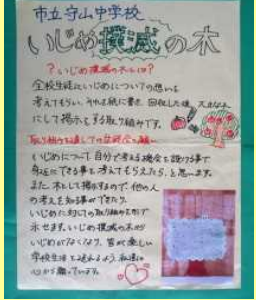 市立守山中学校
いじめ撲滅の木
?いじめ撲滅の木とは?
全校生徒にいじめについての想いを
考えてもらい、それを紙に書き、回収した後、大きな木
にして掲示をする取り組みです。
取り組みを通しての
いじめについて、自分で考える機会を設ける事で
身近にできる事を考えてもらえたら、と思います。
また、木として掲示するので、他の人
の考えを知る事ができたり、
いじめに対しての取り組みを形で
示せます。いじめ撲滅の木から
いじめがなくなり、皆が楽しい
学校生活を送れるよう、私達は
心から願っています。